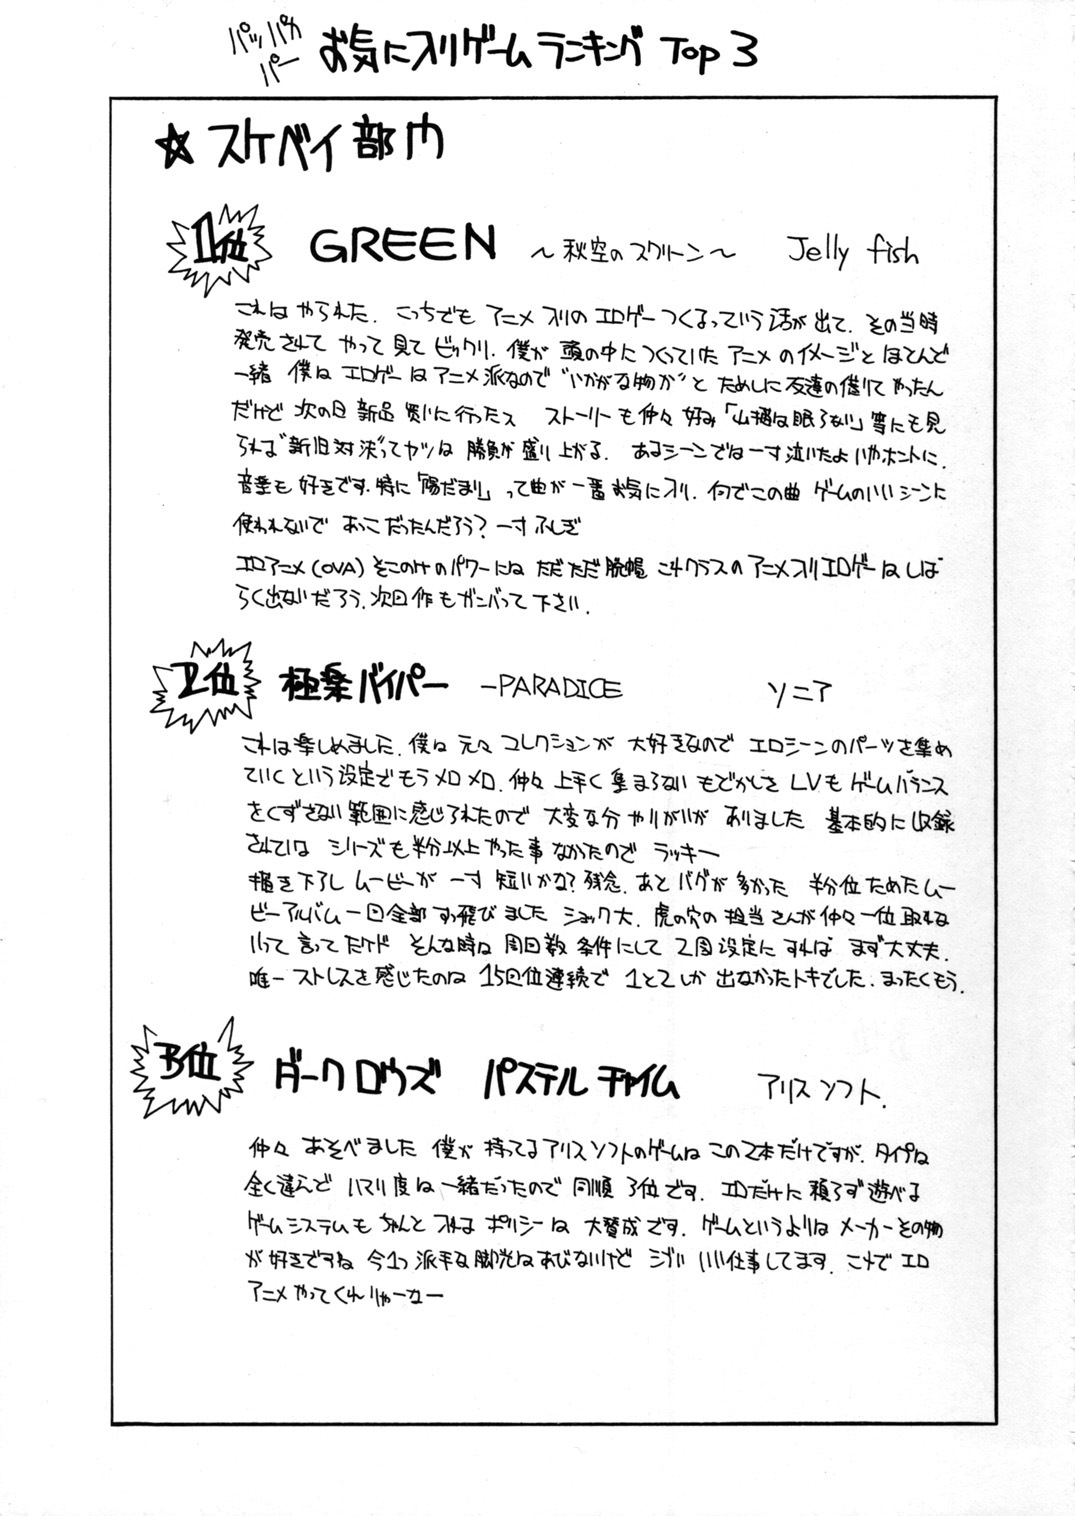 パッパカ
パー
お気に入りゲームランキング Top 3
☆ スケベイ部門
1位 GREEN ～秋空のスクリーン～ Jelly fish
これは やられた. こっちでも アニメ入りの エロゲー つくるっていう 話が出て. その当時
発売されて やって見て ビックリ. 僕が 頭の中につくっていた アニメのイメージと ほとんど
一緒 僕は エロゲーは アニメ派なので "いかがな物か" と ためしに 友達の借りて やったん
だけど 次の日 新品 買いに行ったス ストーリーも 仲々 好み「山猫は眠らない」等にも見
られる"新旧対決"ってヤツは 勝負が 盛り上がる. あるシーンでは一寸泣いたよ いやホントに.
音楽も 好きです. 特に「陽だまり」って曲が 一番お気に入り. 何でこの曲 ゲームのいいシーンに
使われないで あっこだったんだろう? 一寸ふしぎ
エロアニメ(OVA) そこのけのパワーには ただただ脱帽 これクラスの アニメ入りエロゲーは しば
らく出ないだろう. 次回作もガンバって下さい.
2位 極楽バイパー -PARADICE ソニア
これは楽しめました. 僕は 元々 コレクションが 大好きなので エロシーンのパーツを集め
ていくという設定でもうメロメロ. 仲々 上手く 集まらない もどかしさ LVも ゲームバランス
をくずさない 範囲に感じられたので 大変な分 やりがいが ありました 基本的に 収録
されている シリーズも 半分以上 やった事 なかったので ラッキー
描き下ろし ムービーが 一寸 短いかな? 残念. あと バグが 多かった 半分位ためた ムー
ビーアルバム 一回全部 すっ飛びました ショック大. 虎の穴の 担当さんが 仲々一位 取れな
いって 言ってたけド そんな時は 周回数 条件にして 2周設定に すれば まず大丈夫.
唯一 ストレスを感じたのは 15回位連続で 1と2しか 出なかったトキでした. まったくもう.
3位 ダークロウズ パステルチャイム アリスソフト.
仲々 あそべました 僕が 持ってる アリスソフトのゲームは この2本だけですが. タイプは
全く違えど ハマリ度は 一緒だったので 同順 3位です. エロだけに 頼らず 遊べる
ゲームシステムも ちゃんと 入れる ポリシーは 大賛成です. ゲームというよりは メーカーその物
が好きですね 今1つ 派手な脚光は あびないけど シブい いい仕事してます. これで エロ
アニメやってくれりゃーなー